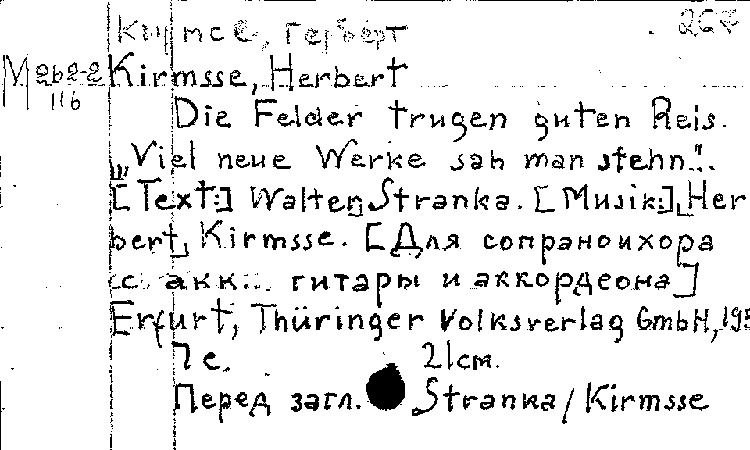 Кирмсе, Герберт
267
М 262-2
116
Kirmsse, Herbert
Die Felder trugen guten Reis.
"Viel neue Werke sah man stehn"..
[Text:] Walter Stranka. [Musik:] Her
bert Kirmsse. [Для сопрано и хора
с акк... гитары и аккордеона]
Erfurt, Thüringer Volksverlag GmbH, 195
7 с. 21см.
Перед загл. Stranka/Kirmsse